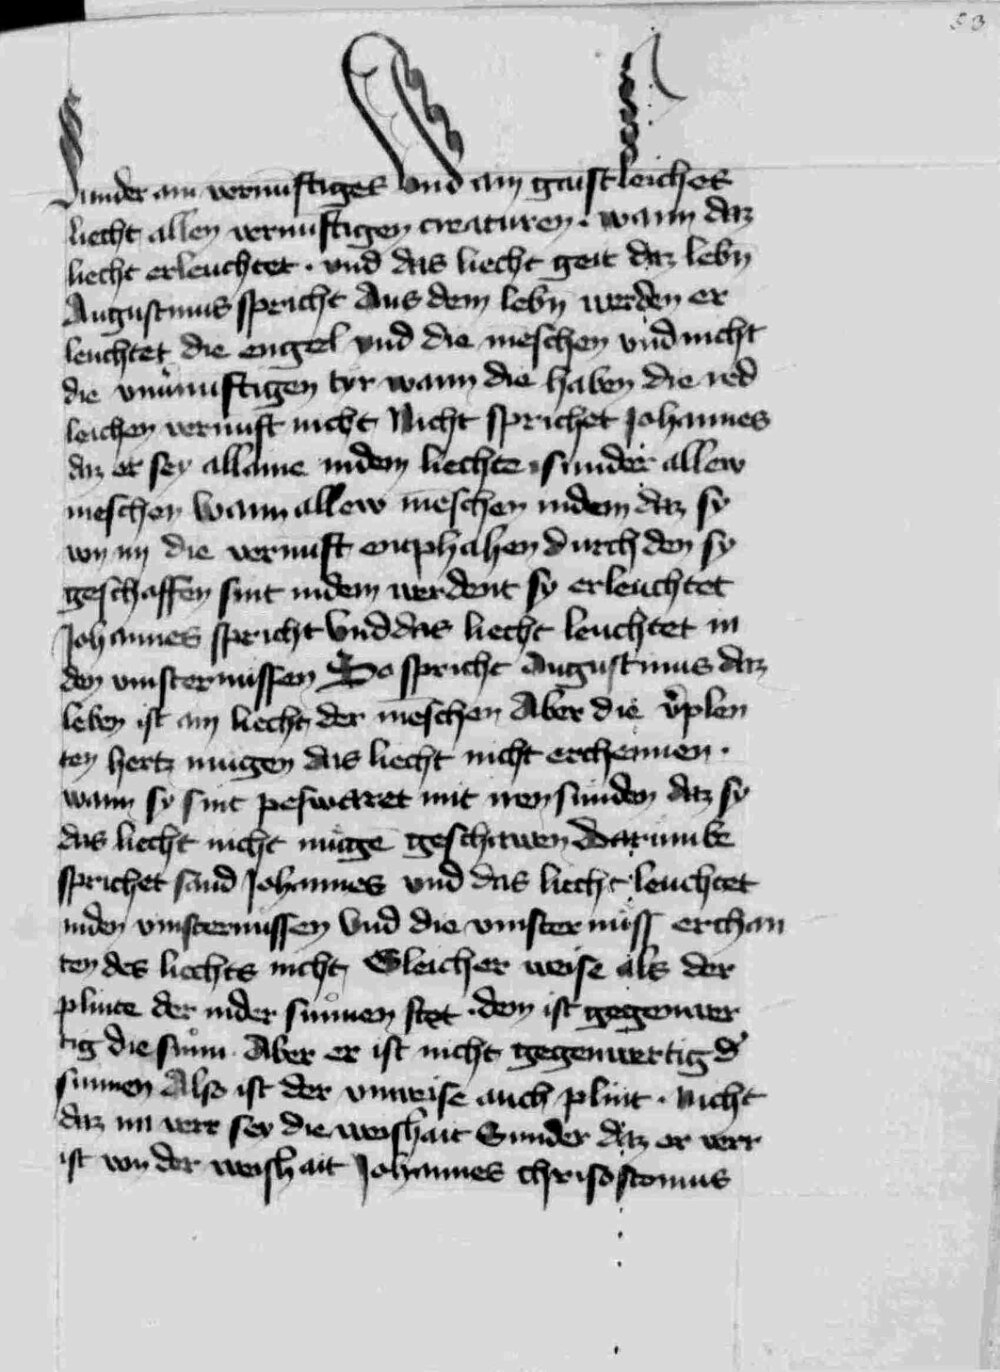 53
Sunder ain vernuͤnftiges vnd ain gaistleiches
liecht allen vernuͤftigen creaturen · wann daz
liecht erleuchtet · vnd das liecht geit daz lebn̄
Augustinus spricht Aus dem lebn̄ werden er
leuchtet die engel vnd die meschen vnd nicht
die vnuͤnuftigen tyr wann die haben die red
leichen vernuft nicht Nicht sprichet Johannes
daz er sey allaine indem liechte · sunder allew
meschen wann allew mēschen indem daz sy
von im die vernuft enphahen durch den sy
geschaffen sint indem werdent sy erleuchtet
Johannes spricht vnd das liecht leuchtet in
den vinsternissen So spricht Augustinus daz
leben ist ain liecht der mēschen Aber die v̓plen
ten hertz muͤgen das liecht nicht erchennen ·
wann sy sint peswaret mit iren sunden daz sy
das liecht nicht muͤgē geschawen Darumbe
sprichet sand Johannes vnd das liecht leuchtet
inden vinsternissen vnd die vinsternuͤss erchan
ten des liechts nicht Gleicher weise als der
plinte der inder sunnen stet · dem ist gegenwer
tig die sunn · Aber er ist nicht gegenwertig d̓
sunnen Also ist der vnweise auch plint · Nicht
daz im verr sey die weishait Sunder daz er verr
ist von der weishait Johannes chrisostomus